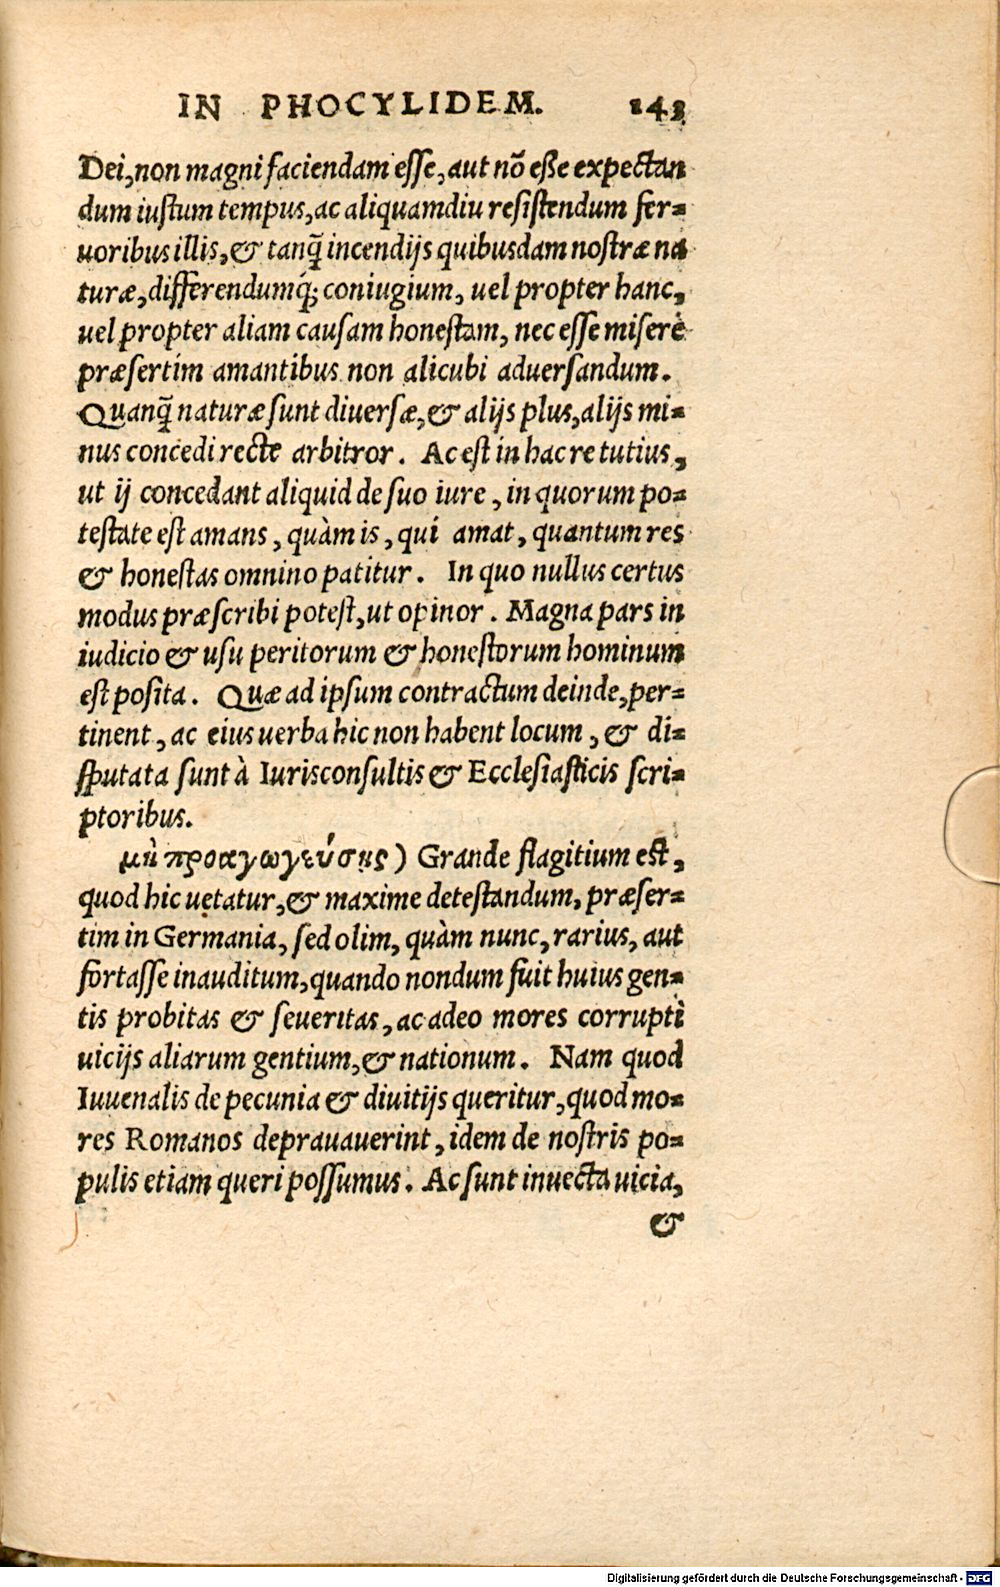 IN PHOCYLIDEM. 143
Dei, non magni faciendam esse, aut nõ eße expectan
dum iustum tempus, ac aliquamdiu resistendum fer=
uoribus illis, & tanq̃ incendijs quibusdam nostræ na
turæ, differendumq́; coniugium, uel propter hanc,
uel propter aliam causam honestam, nec esse miserè
præsertim amantibus non alicubi aduersandum.
Quanq̃ naturæ sunt diuersæ, & alijs plus, alijs mi=
nus concedi recte arbitror. Ac est in hac re tutius,
ut ij concedant aliquid de suo iure, in quorum po=
testate est amans, quàm is, qui amat, quantum res
& honestas omnino patitur. In quo nullus certus
modus præscribi potest, ut opinor. Magna pars in
iudicio & usu peritorum & honestorum hominum
est posita. Quæ ad ipsum contractum deinde, per=
tinent, ac eius uerba hic non habent locum, & di=
sputata sunt à Iurisconsultis & Ecclesiasticis scri=
ptoribus.
μὴ προαγωγεύσῃς) Grande flagitium est,
quod hic uetatur, & maxime detestandum, præser=
tim in Germania, sed olim, quàm nunc, rarius, aut
fortasse inauditum, quando nondum fuit huius gen=
tis probitas & seueritas, ac adeo mores corrupti
uicijs aliarum gentium, & nationum. Nam quod
Iuuenalis de pecunia & diuitijs queritur, quod mo=
res Romanos deprauauerint, idem de nostris po=
pulis etiam queri possumus. Ac sunt inuecta uicia,
&
Digitalisierung gefördert durch die Deutsche Forschungsgemeinschaft - DFG